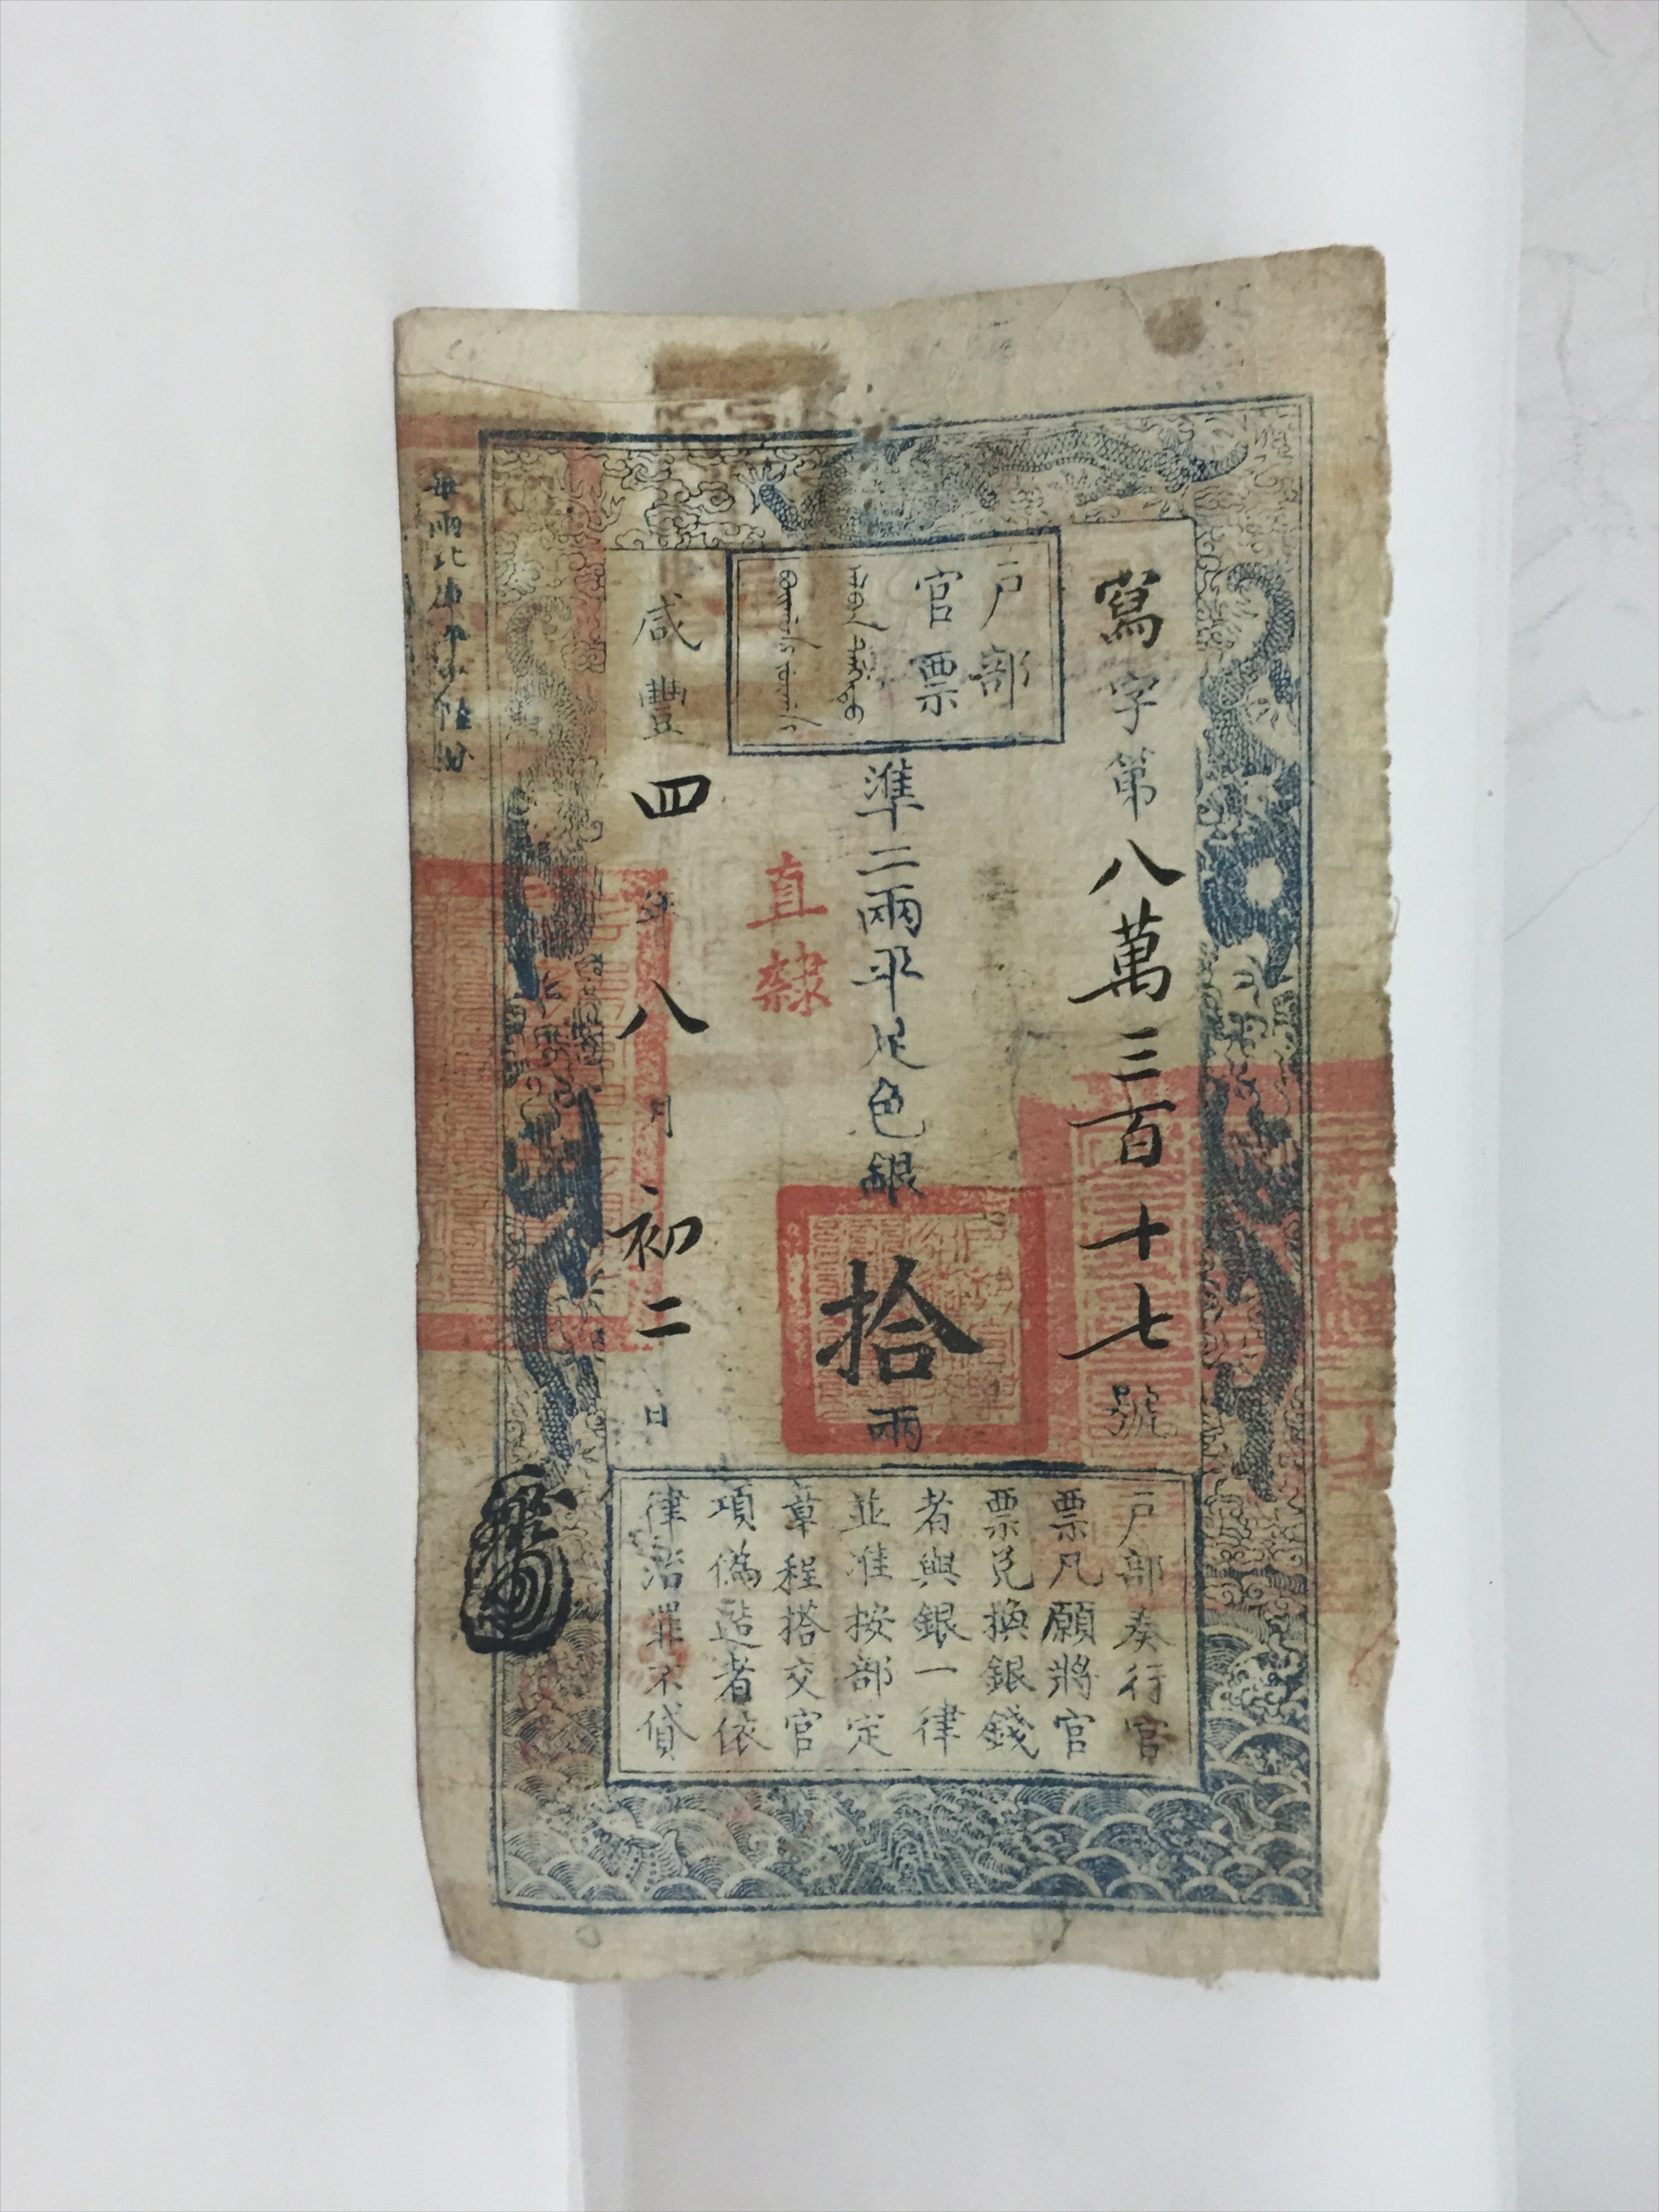 寫字第八萬三百十七號
戶部
官票
準二兩平足色銀拾兩
直隸
咸豐四年八月初二日
戶部奏行官
票凡願將官
票兌換銀錢
者與銀一律
並准按部定
章程搭交官
項偽造者依
律治罪不貸